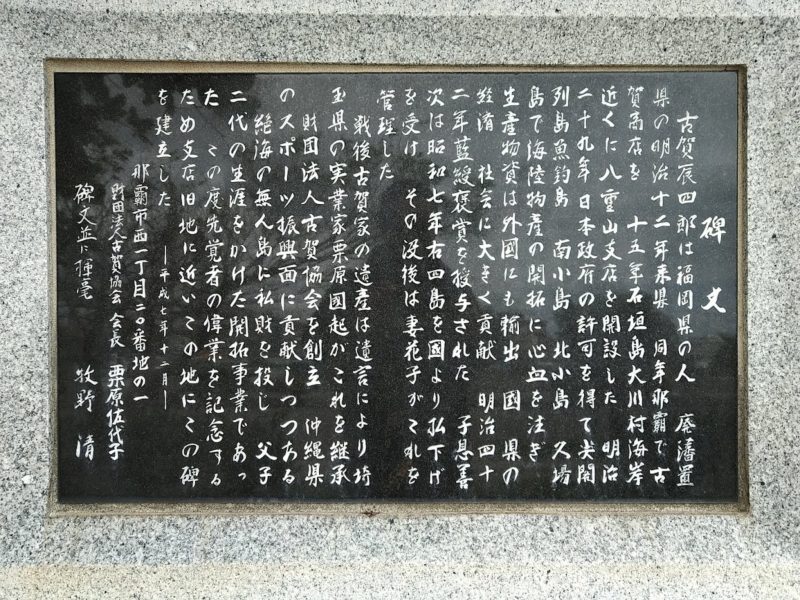 碑文
古賀辰四郎は福岡県の人　廃藩置
県の明治十二年来県　同年那覇で古
賀商店を　十五年石垣島大川村海岸
近くに八重山支店を開設した　明治
二十九年日本政府の許可を得て尖閣
列島魚釣島　南小島　北小島　久場
島で海陸物産の開拓に心血を注ぎ
生産物資は外國にも輸出　國県の
経済　社会に大きく貢献　明治四十
二年藍綬褒賞を授与された　子息善
次は昭和七年右四島を國より払下げ
を受け　その没後は妻花子がこれを
管理した
戦後古賀家の遺産は遺言により埼
玉県の実業家栗原國起がこれを継承
財団法人古賀協会を創立　沖縄県
のスポーツ振興面に貢献しつつある
絶海の無人島に私財を投じ　父子
二代の生涯をかけた開拓事業であっ
た　この度先覚者の偉業を記念する
ため支店旧地に近いこの地にこの碑
を建立した　―平成七年十二月―
那覇市西一丁目二〇番地の一
財団法人古賀協会　会長　栗原佐代子
碑文並に揮毫　牧野　清